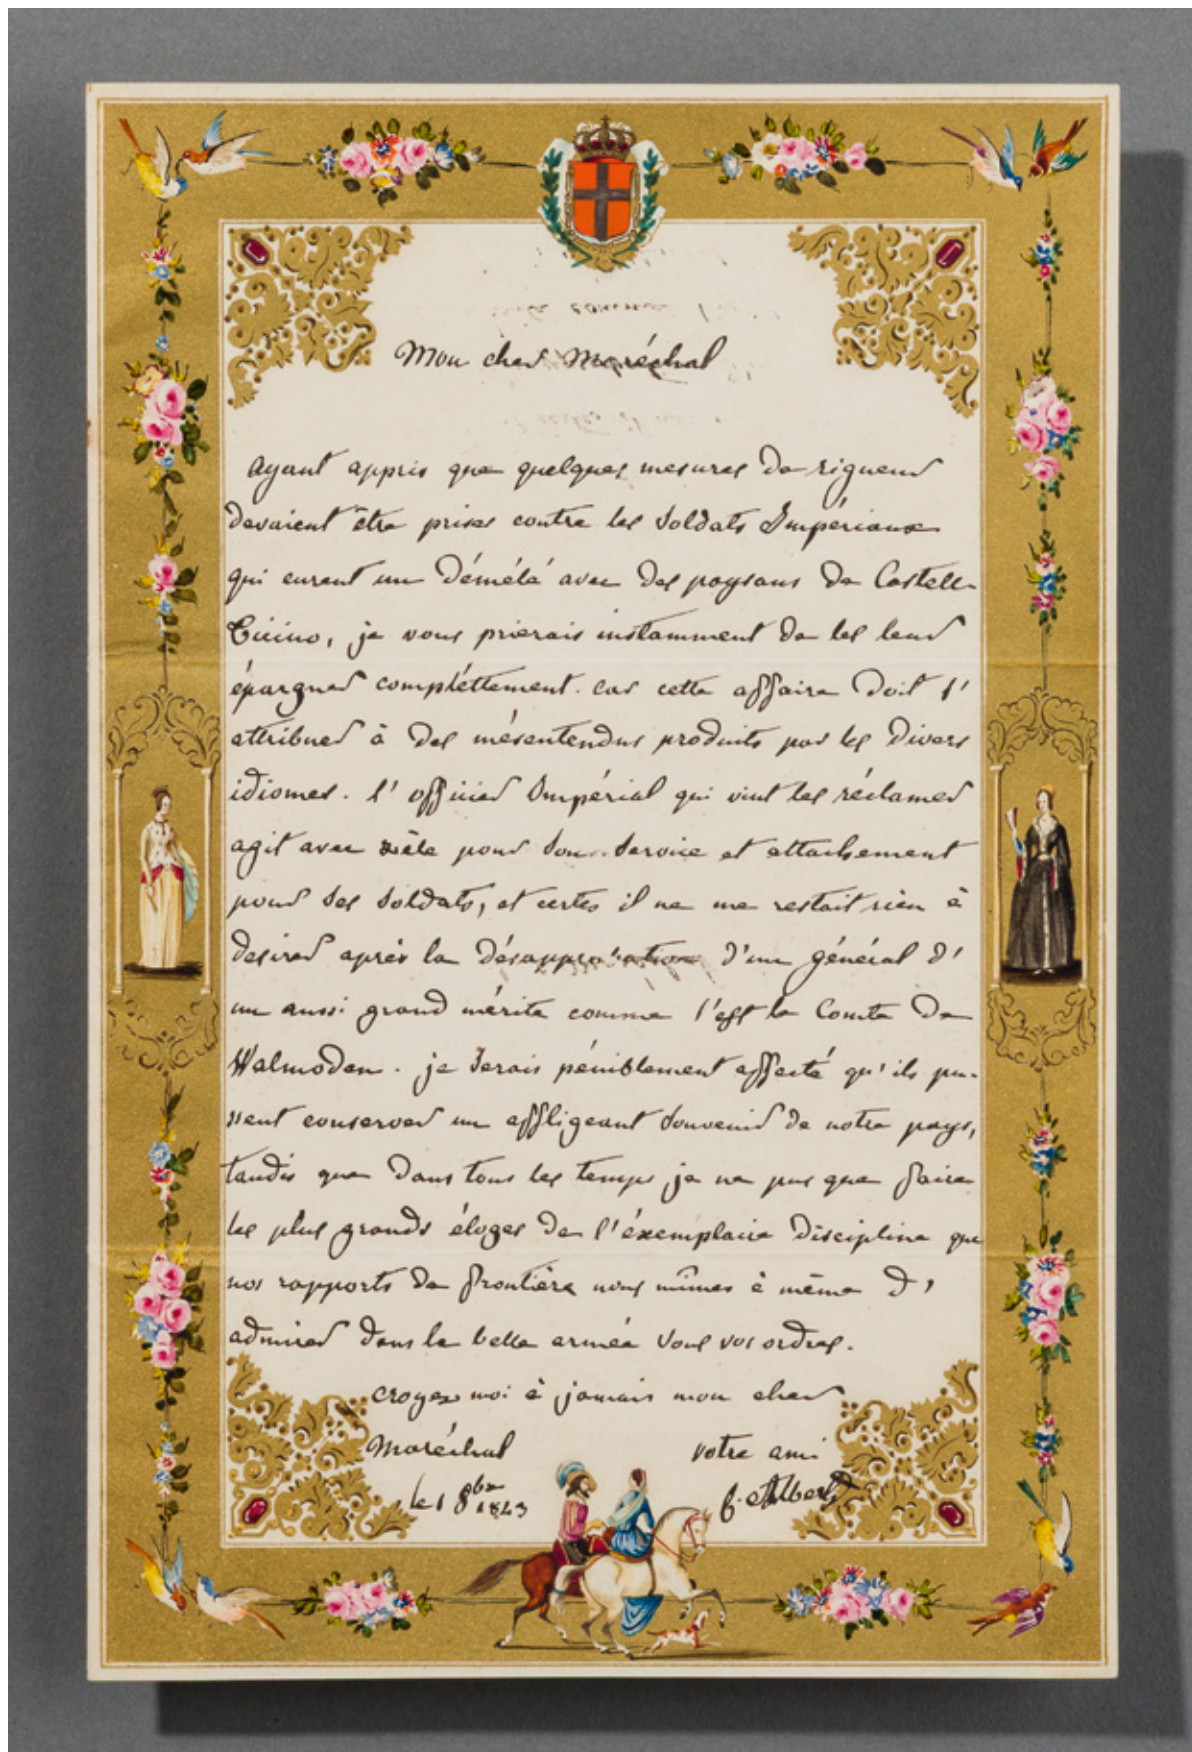 Mon cher Maréchal
Ayant appris que quelques mesures de rigueur
devaient être prises contre les Soldats Impériaux
qui eurent un démélé avec des paysans de Castell-
Ticino, je vous prierais instamment de les leur
épargner complèttement. car cette affaire doit s'
attribuer à des mésentendus produits par les divers
idiomes. l'officier Impérial qui vint les réclamer
agit avec zèle pour Son Service et attachement
pour Ses Soldats, et certes il ne me restait rien à
desirer après la désapprobation d'un général d'
un aussi grand mérite comme l'est le Comte de
Walmoden. je Serais péniblement affecté qu'ils pu-
ssent conserver un affligeant Souvenir de notre pays,
tandis que dans tous les temps je ne pus que faire
les plus grands éloges de l'éxemplaire discipline que
nos rapports de frontière nous mîmes à même d'
admirer dans la belle armée Sous vos ordres.
croyez moi à jamais mon cher
Maréchal votre ami
le 1 8bre 1843 C. Albert